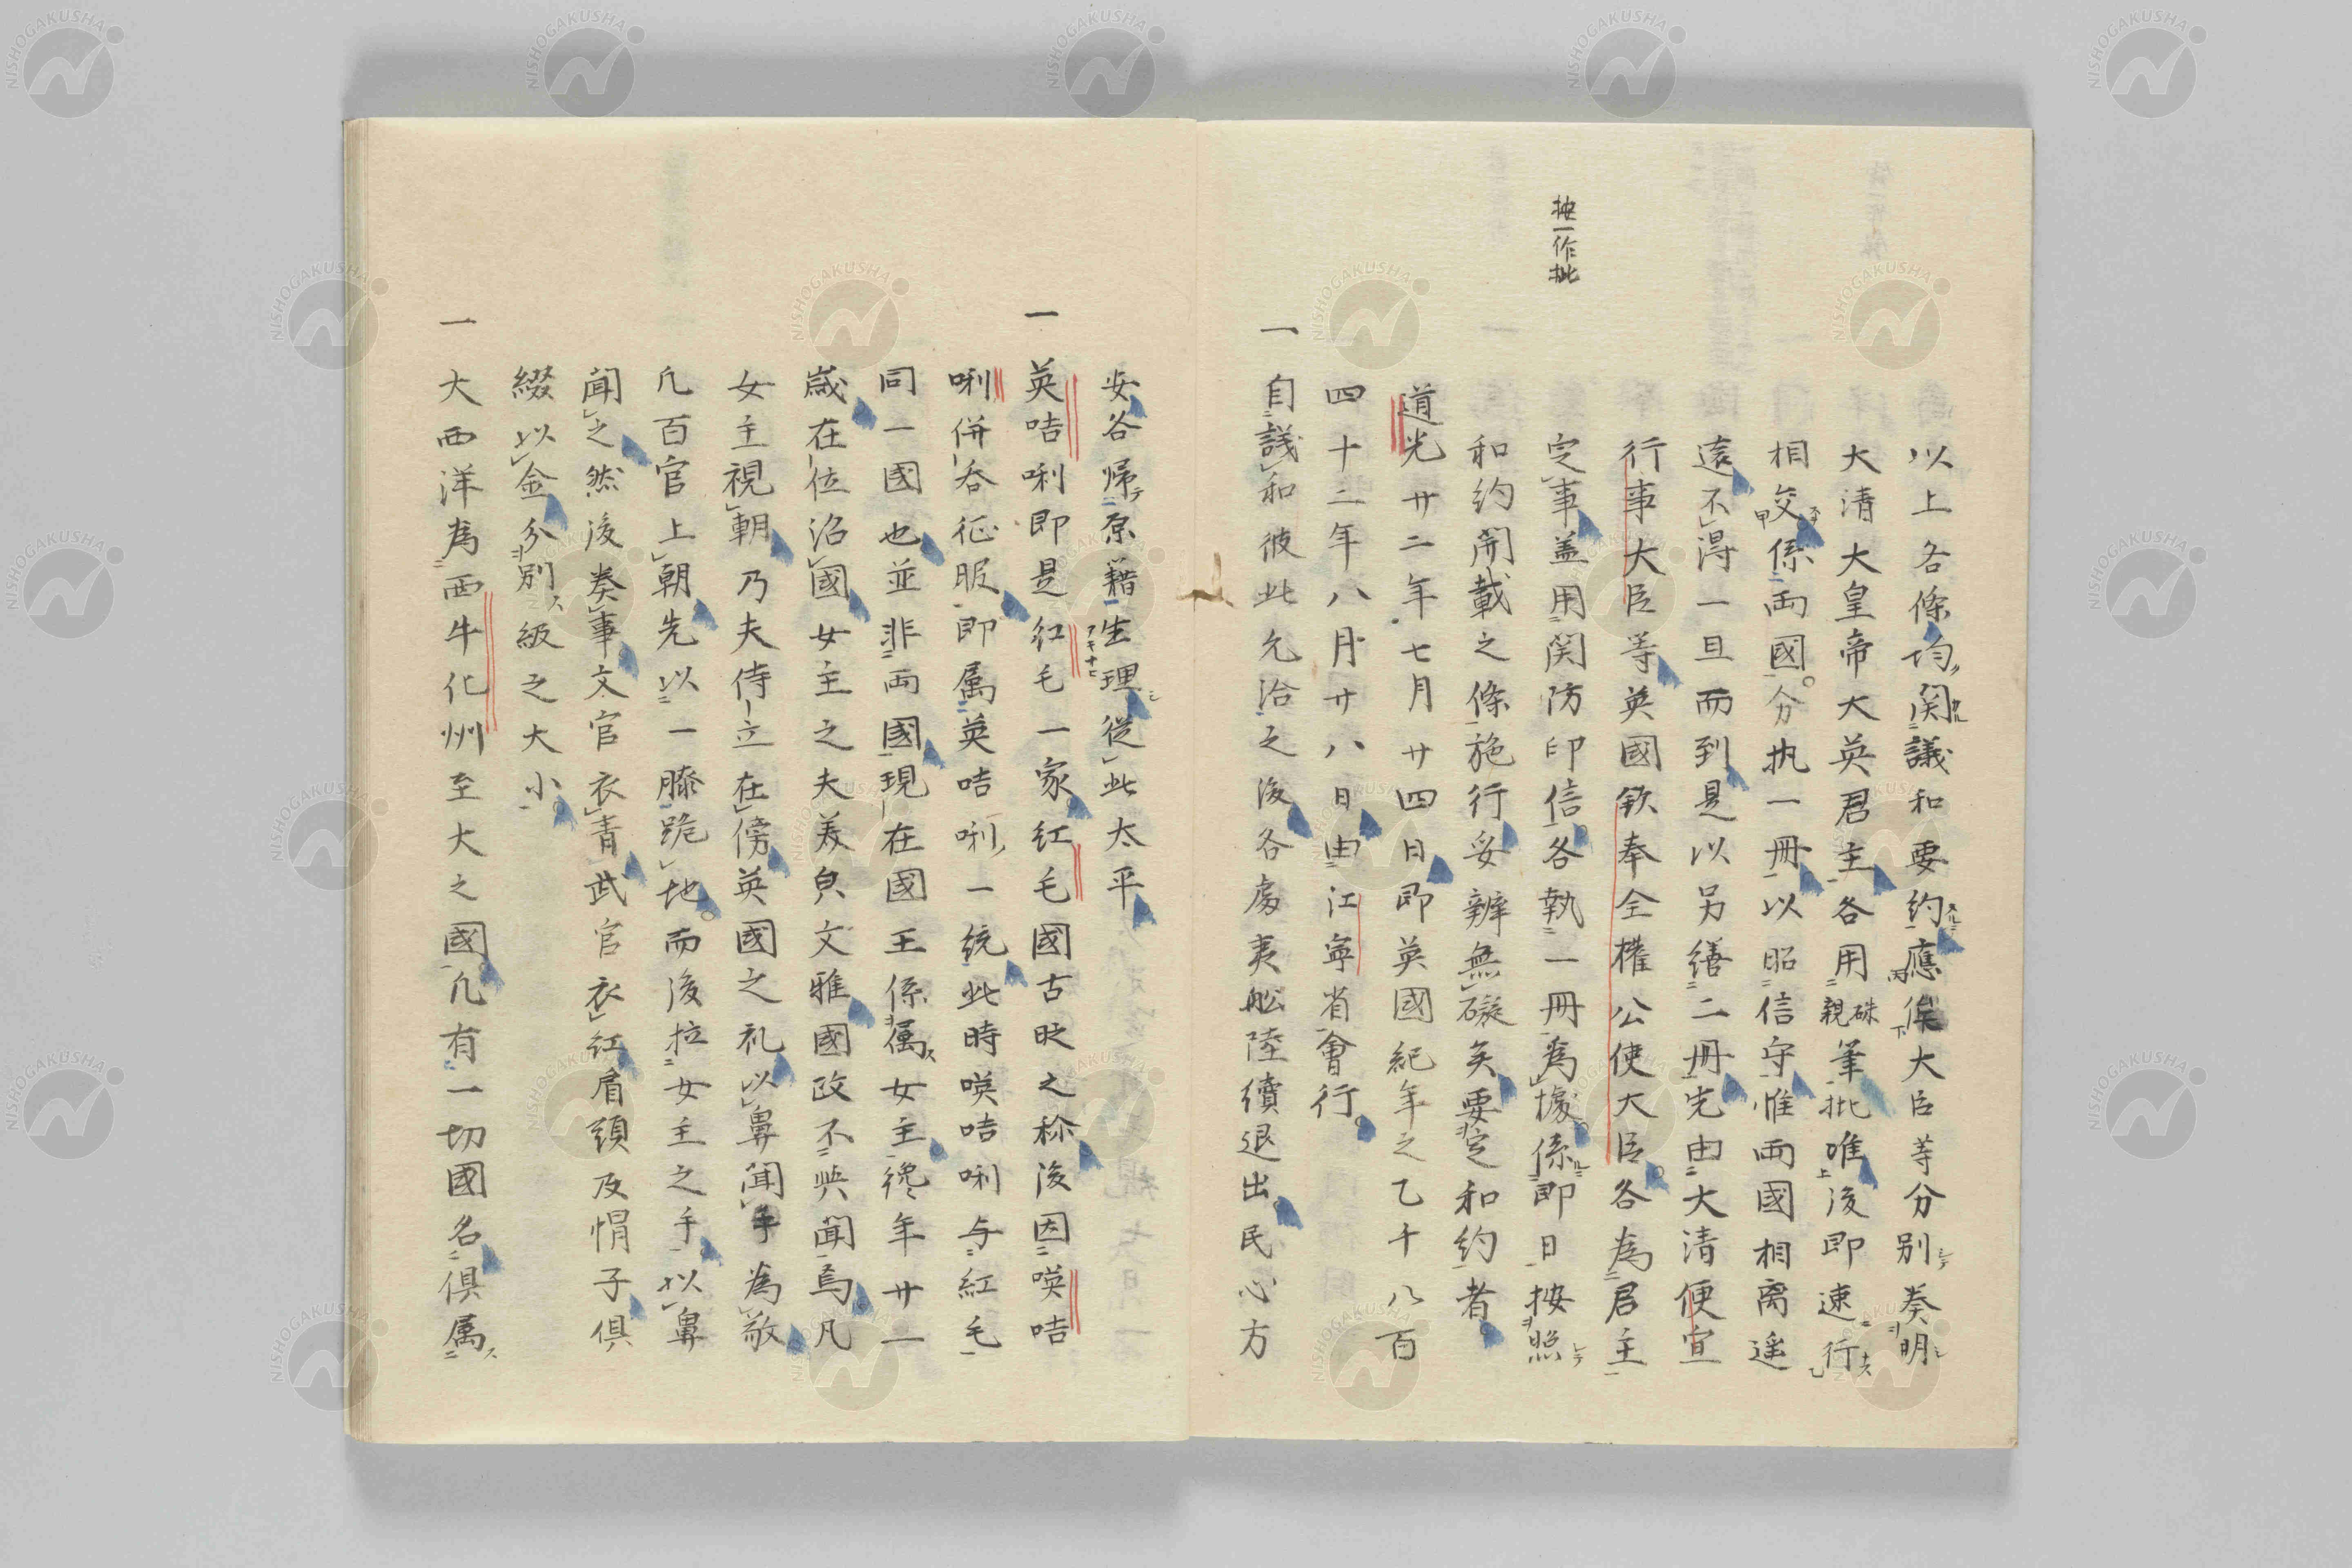 按一作批
以上各條均関議和要約應俟大臣等分別奏明
大清大皇帝大英君主各用硃親筆批唯後即速行
相交係両國分执一冊以昭信守惟両國相离遥
遠不得一旦而到是以另繕二冊先由大清便宜
行事大臣等英國欽奉全權公使大臣各為君主
定事盖用関防印信各執一冊為據係即日按照
和約開載之條施行妥辦無礙矣要定和約者
道光廿二年七月廿四日即英國紀年之乙千八百
四十二年八月廿八日由江寧省會行
一自議和彼此允洽之後各處夷舩陸續退出民心方
安各帰原籍生理従此太平
一英咭唎即是紅毛一家紅毛國古昄之称後因嘆咭
唎併呑征服即属英咭唎一統此時嘆咭唎与紅毛
同一國也並非両國現在國王係属女主纔年廿一
歳在位治國女主之夫美皃文雅國政不與聞焉凡
女主視朝乃夫侍立在傍英國之礼以鼻聞手為敬
凢百官上朝先以一膝跪地而後拉女主之手以鼻
聞之然後奏事文官衣青武官衣紅肩頭及㡌子俱
綴以金分別級之大小
一大西洋為西牛化州至大之國凢有一切國名俱属
NISHOGAKUSHA